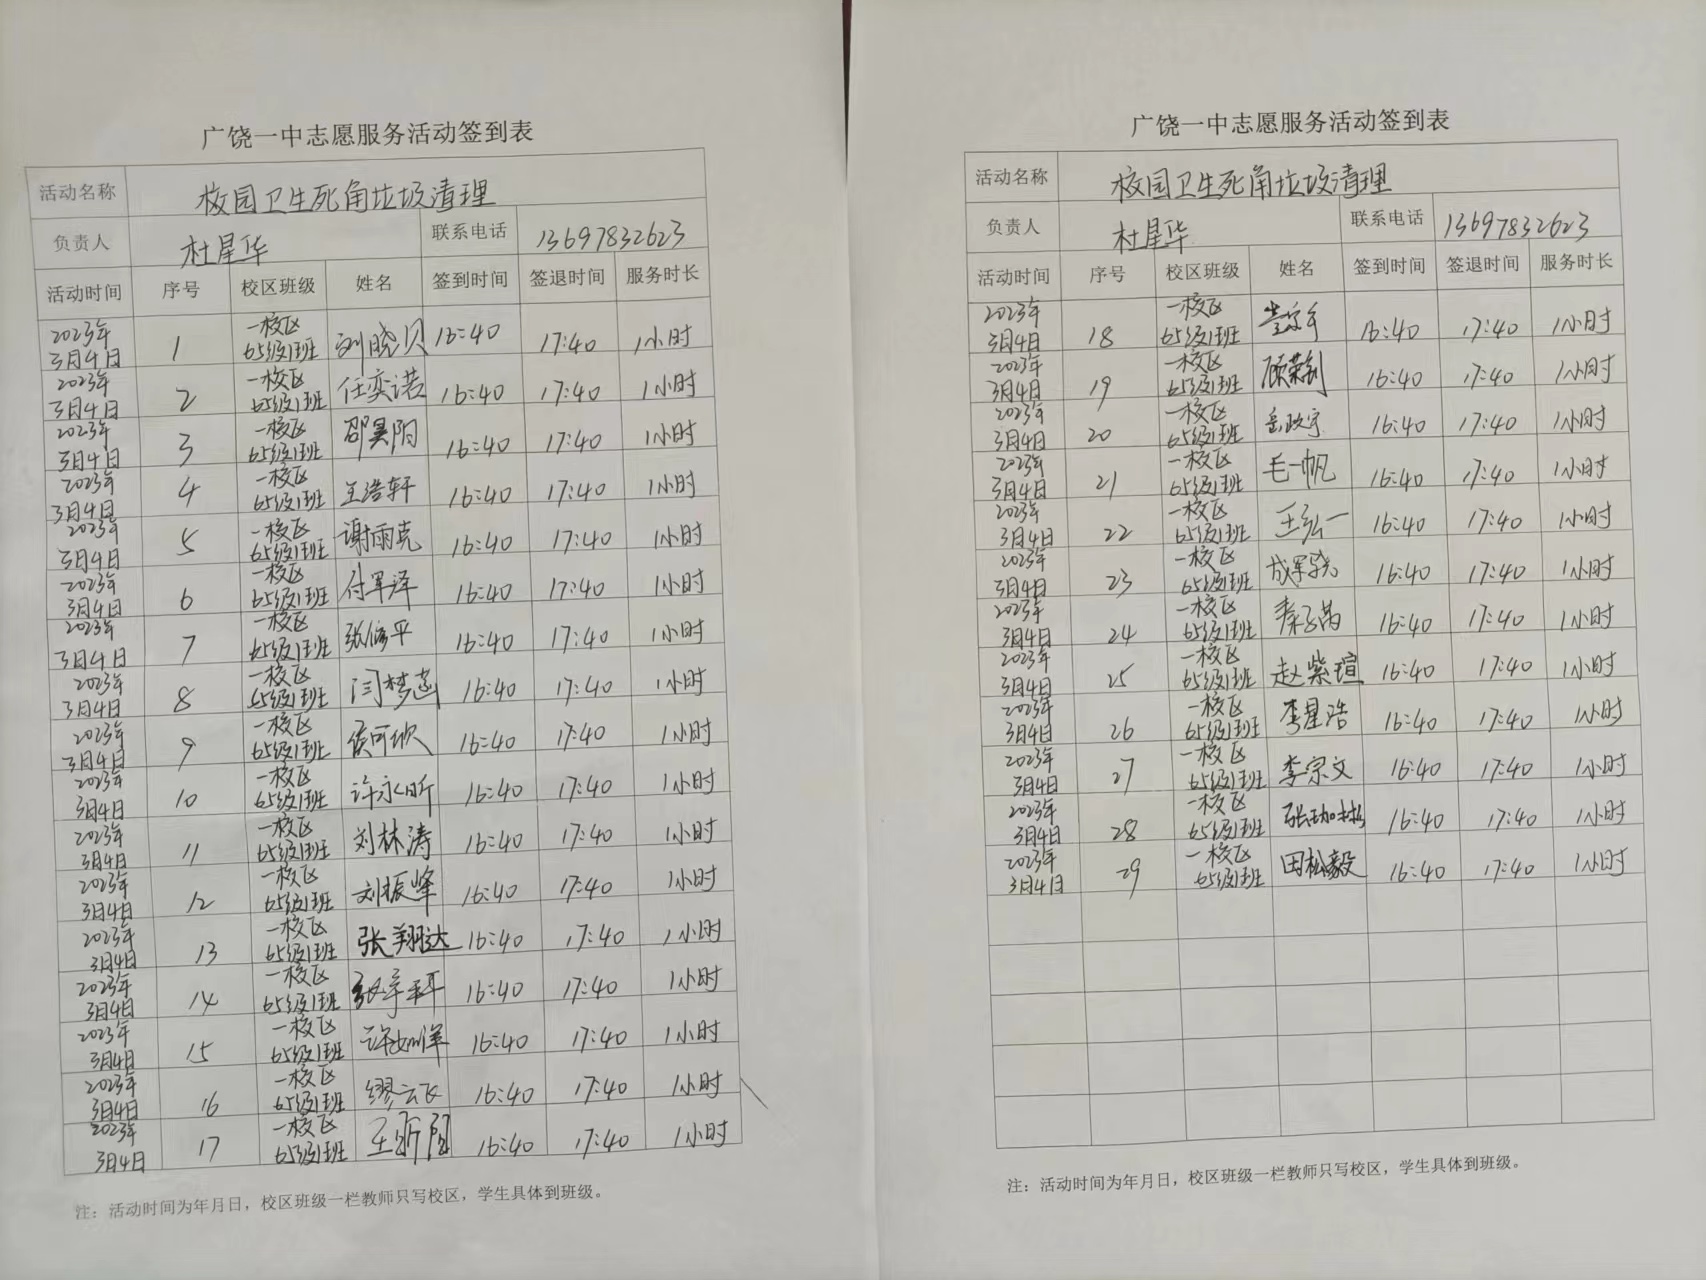 广饶一中志愿服务活动签到表
活动名称 校园卫生死角垃圾清理
负责人 杜星华 联系电话 13697832623
活动时间 序号 校区班级 姓名 签到时间 签退时间 服务时长
2023年3月4日 1 一校区65级1班 刘晓贝 16:40 17:40 1小时
2023年3月4日 2 一校区65级1班 任奕诺 16:40 17:40 1小时
2023年3月4日 3 一校区65级1班 邵昊阳 16:40 17:40 1小时
2023年3月4日 4 一校区65级1班 王浩轩 16:40 17:40 1小时
2023年3月4日 5 一校区65级1班 谢雨克 16:40 17:40 1小时
2023年3月4日 6 一校区65级1班 付军泽 16:40 17:40 1小时
2023年3月4日 7 一校区65级1班 张修平 16:40 17:40 1小时
2023年3月4日 8 一校区65级1班 闫梦菡 16:40 17:40 1小时
2023年3月4日 9 一校区65级1班 侯可欣 16:40 17:40 1小时
2023年3月4日 10 一校区65级1班 许永昕 16:40 17:40 1小时
2023年3月4日 11 一校区65级1班 刘林涛 16:40 17:40 1小时
2023年3月4日 12 一校区65级1班 刘振峰 16:40 17:40 1小时
2023年3月4日 13 一校区65级1班 张翔达 16:40 17:40 1小时
2023年3月4日 14 一校区65级1班 16:40 17:40 1小时
2023年3月4日 15 一校区65级1班 16:40 17:40 1小时
2023年3月4日 16 一校区65级1班 缪云飞 16:40 17:40 1小时
2023年3月4日 17 一校区65级1班 16:40 17:40 1小时
注：活动时间为年月日，校区班级一栏教师只写校区，学生具体到班级。
广饶一中志愿服务活动签到表
活动名称 校园卫生死角垃圾清理
负责人 杜星华 联系电话 13697832623
活动时间 序号 校区班级 姓名 签到时间 签退时间 服务时长
2023年3月4日 18 一校区65级1班 16:40 17:40 1小时
2023年3月4日 19 一校区65级1班 顾荣钊 16:40 17:40 1小时
2023年3月4日 20 一校区65级1班 岳政宇 16:40 17:40 1小时
2023年3月4日 21 一校区65级1班 毛一帆 16:40 17:40 1小时
2023年3月4日 22 一校区65级1班 王弘一 16:40 17:40 1小时
2023年3月4日 23 一校区65级1班 16:40 17:40 1小时
2023年3月4日 24 一校区65级1班 16:40 17:40 1小时
2023年3月4日 25 一校区65级1班 赵紫瑄 16:40 17:40 1小时
2023年3月4日 26 一校区65级1班 李星浩 16:40 17:40 1小时
2023年3月4日 27 一校区65级1班 李宗文 16:40 17:40 1小时
2023年3月4日 28 一校区65级1班 16:40 17:40 1小时
2023年3月4日 29 一校区65级1班 田松毅 16:40 17:40 1小时
注：活动时间为年月日，校区班级一栏教师只写校区，学生具体到班级。